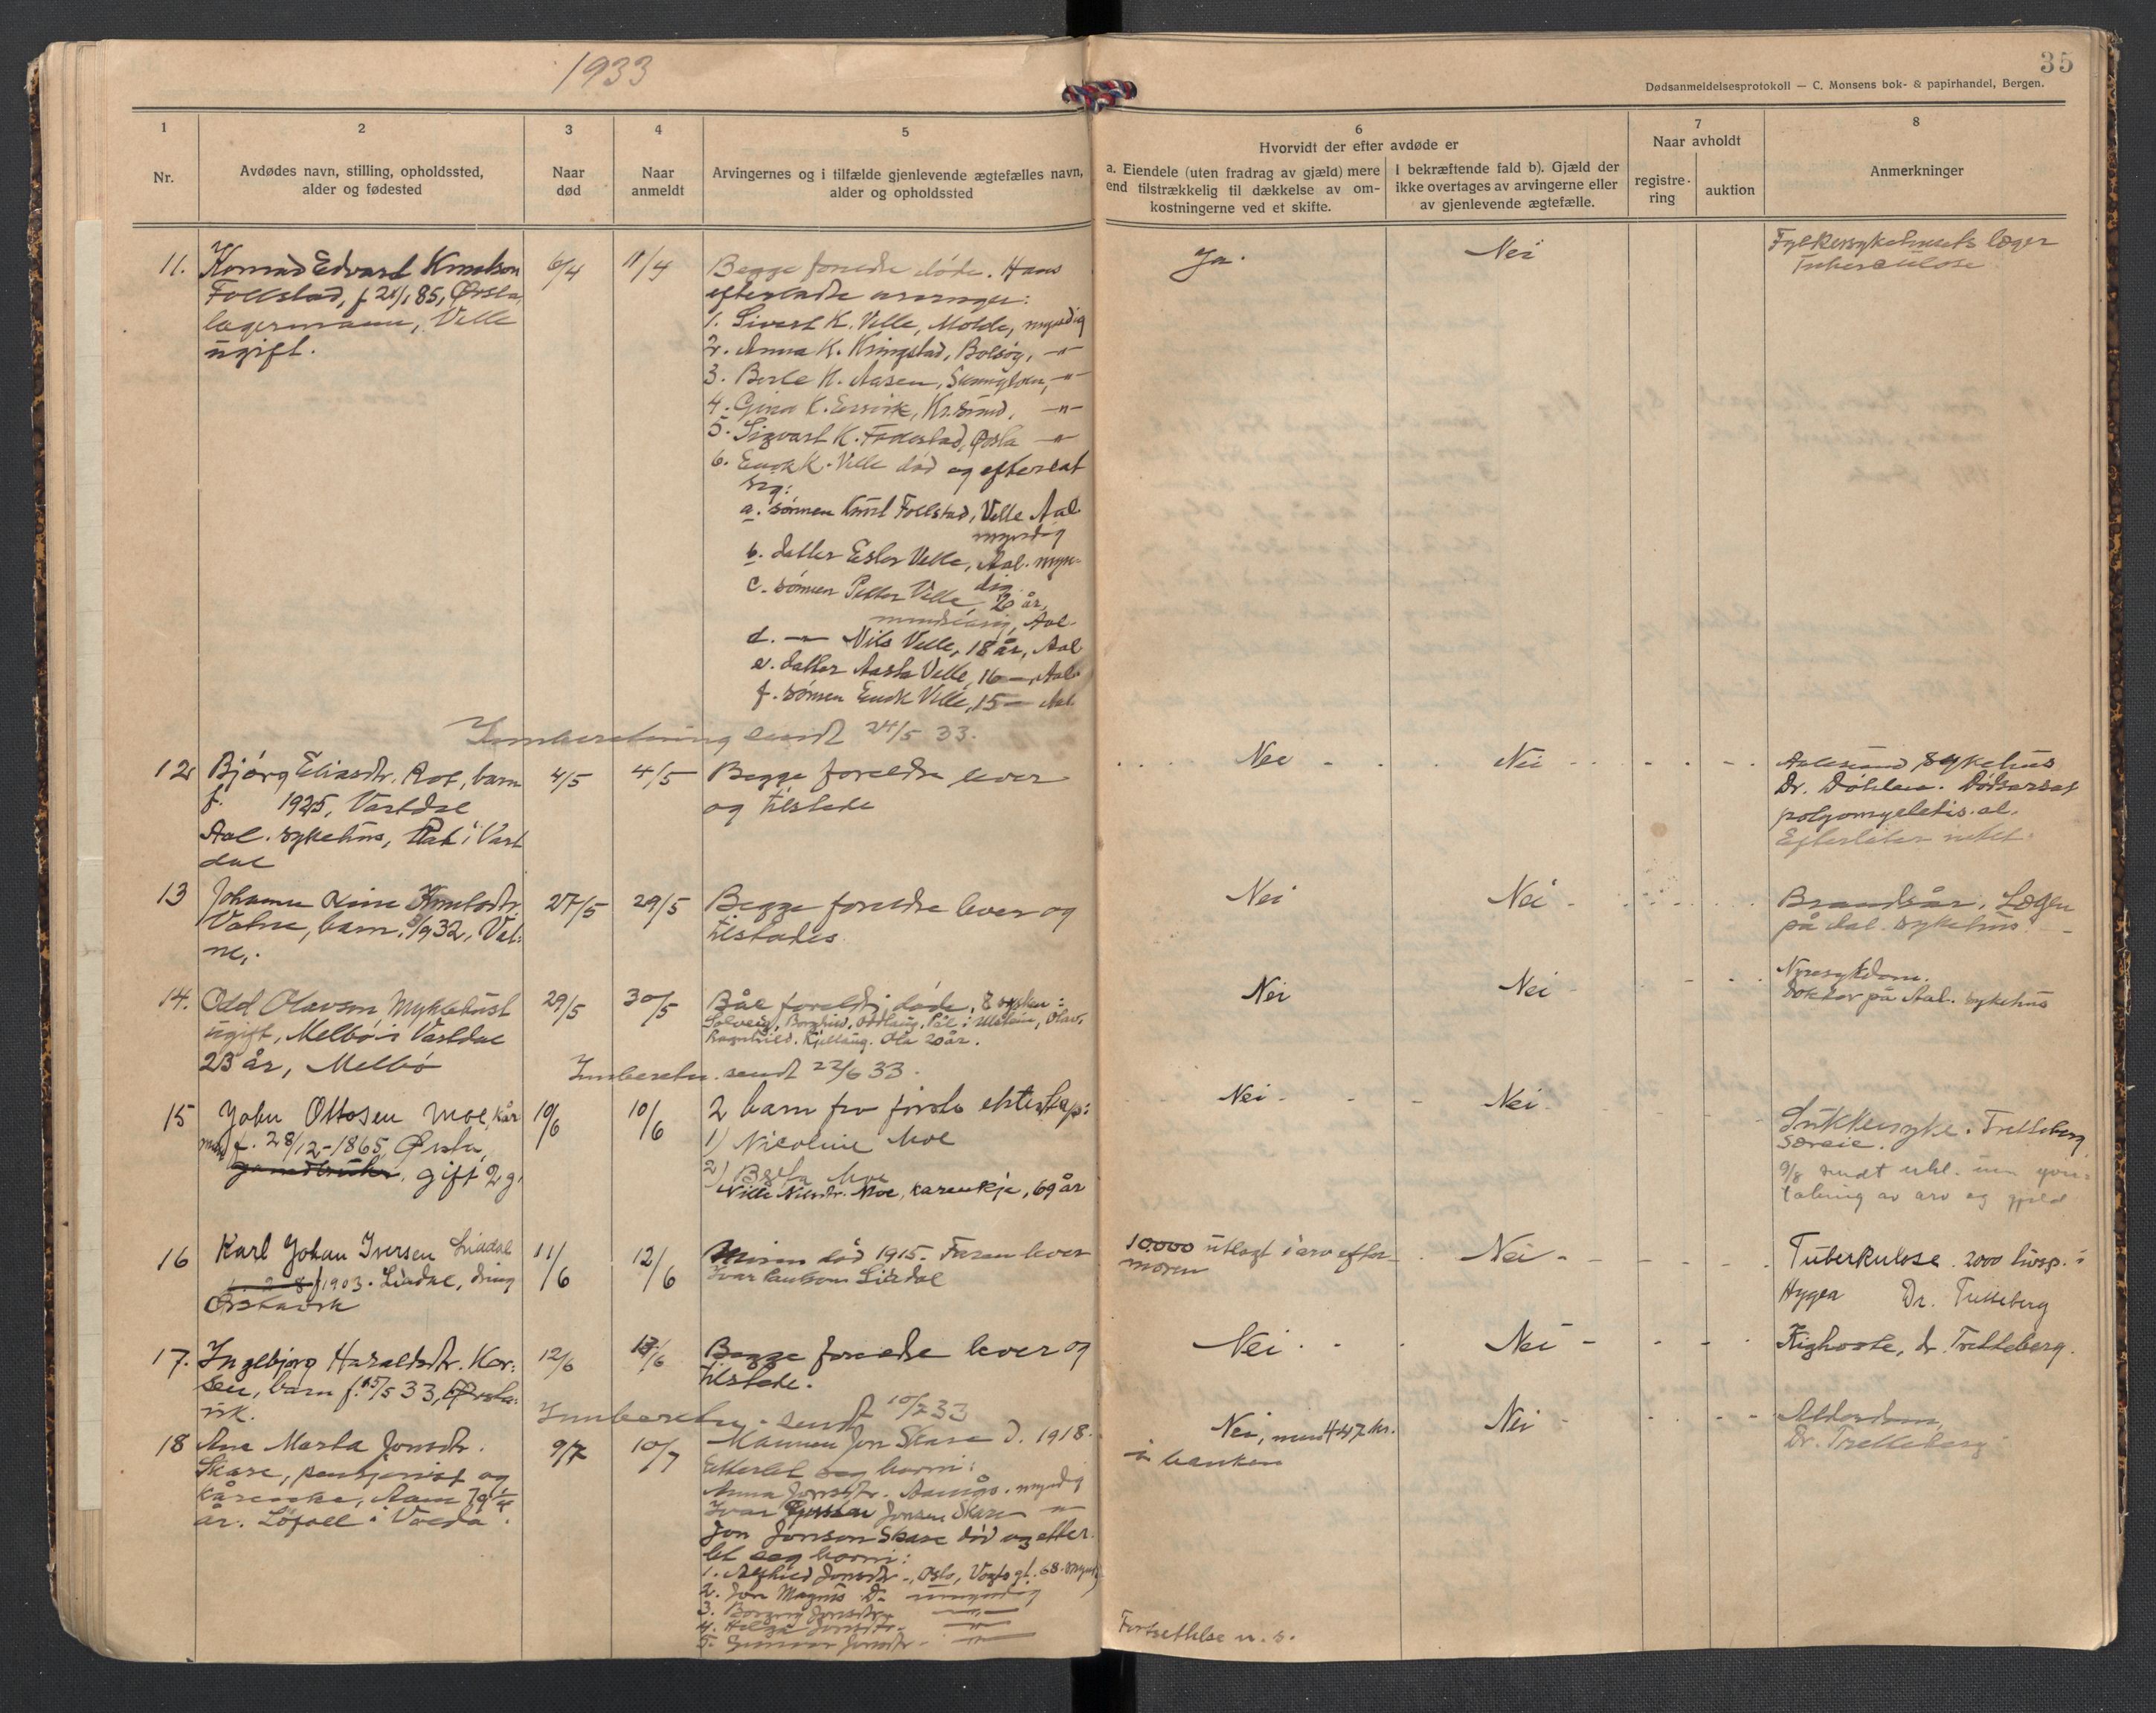 1933
35
Dødsanmeldelsesprotokoll — C. Monsens bok- & papirhandel, Bergen.
1
Nr.
2
Avdødes navn, stilling, opholdssted,
alder og fødested
3
Naar
død
4
Naar
anmeldt
5
Arvingernes og i tilfælde gjenlevende ægtefælles navn,
alder og opholdssted
6
Hvorvidt der efter avdøde er
a. Eiendele (uten fradrag av gjæld) mere
end tilstrækkelig til dækkelse av om-
kostningerne ved et skifte.
I bekræftende fald b). Gjæld der
ikke overtages av arvingerne eller
av gjenlevende ægtefælle.
7
Naar avholdt
registre-
ring
auktion
8
Anmerkninger
11.
Konrad Edvard Knutson
Follestad, f. 85, Ørsta,
lagermann, Velle
ugift.
6/4
11/4
Begge foreldre døde. Hans
efterladte arvinger:
1. Sivert K. Velle, Molde, myndig
2. Anna K. Kringstad, Bolsøy, -"-
3. K. Aasen, -"-
4. Gina K. Kr.sund. -"-
5. Sigvart K. Follestad, Ørsta -"-
6. K. Velle død og efterlat
sig:
a. sønnen Knut Follstad, Velle Aal
myndig
b. datter Ester Velle, Aal. myn-
dig
c. sønnen Petter Velle, 20 år,
mindreårig, Aal.
d. -"- Nils Velle, 18 år, Aal
e. datter Aasta Velle, 16 — Aal.
f. sønnen Velle, 15 — Aal.
Ja.
Nei
Fylkessykehusets læger
Tuberculose
Innberetning sendt 24/5 33.
12
Bjørg Eliasdtr. barn
f. 1925, Vartdal
Aal. sykehus, i Vart
dal
4/5
4/5
Begge foreldre lever
og tilstede
Nei
Nei
Aalesund sykehus
Dr. Dødsårsak
Efterlater intet.
13
Johanne Line Knutsdtr
Vatne, barn. 32, Vat-
ne.
27/5
29/5
Begge foreldre lever og
tilstedes
Nei
Nei
Brandsår. Legen
på Aal. sykehus.
14.
Odd Olavson Myklebust
ugift, Melbø i Vartdal
23 år, Melbø
29/5
30/5
foreldre døde. 8 sysken:
Solveig, Borghild, Oddlaug, Pål i Ulstein, Olav,
Ragnhild. Kjellaug. Ola 20 år.
Nei
Nei
Nyresykdom.
Doktor på Aal. sykehus
Innberetn. sendt 22/6 33.
15
John Ottosen Moe, kår
mand f. 28/12-1865, Ørsta,
gift 2 g.
10/6
10/6
2 barn fra første ekteskap:
1) Nicoline Moe
2) Moe
Nilsdtr. Moe, 69 år
Nei
Nei
Sukkersyke. Tretteberg
9/8 sendt
av arv og gjeld
16
Karl Johan Iversen Liadal
f 1903. Liadal, dreng
Ørstavik
11/6
12/6
Moren død 1915. Faren lever
Ivar Paulson Liadal
10.000 utlagt i arv efter
moren
Nei
Tuberkulose. 2000 livsp. i
Hygea Dr. Tretteberg
17.
Ingebjørg Haraldsdtr. Kor-
sen, barn f. 15/5 33, Ørsta-
vik.
12/6
13/6
Begge foreldre lever og
tilstede.
Nei
Nei
Kighoste, dr. Tretteberg.
Innberetn. sendt 10/7 33
18
Ane Marta Jonsdtr.
Skare, pensjonist og
79
år. i Volda.
9/7
10/7
Mannen Jon Skare d. 1918.
Etterlet seg borni:
Anna Jonsdtr. myndig
Ivar Jonsen Skare -"-
Jon Jonson Skare død og etter-
let seg borni:
1. Jonsdtr., Oslo, gt. 68. myndig
2. Jon Magnus umyndig
3. Jonsdtr. -"-
4. Helga Jonsdtr. -"-
5. Gunnvor Jonsdtr. -"-
Nei, men 447 kr.
i banken
Nei
Alderdom,
Dr. Tretteberg
Fortsettelse n. s.